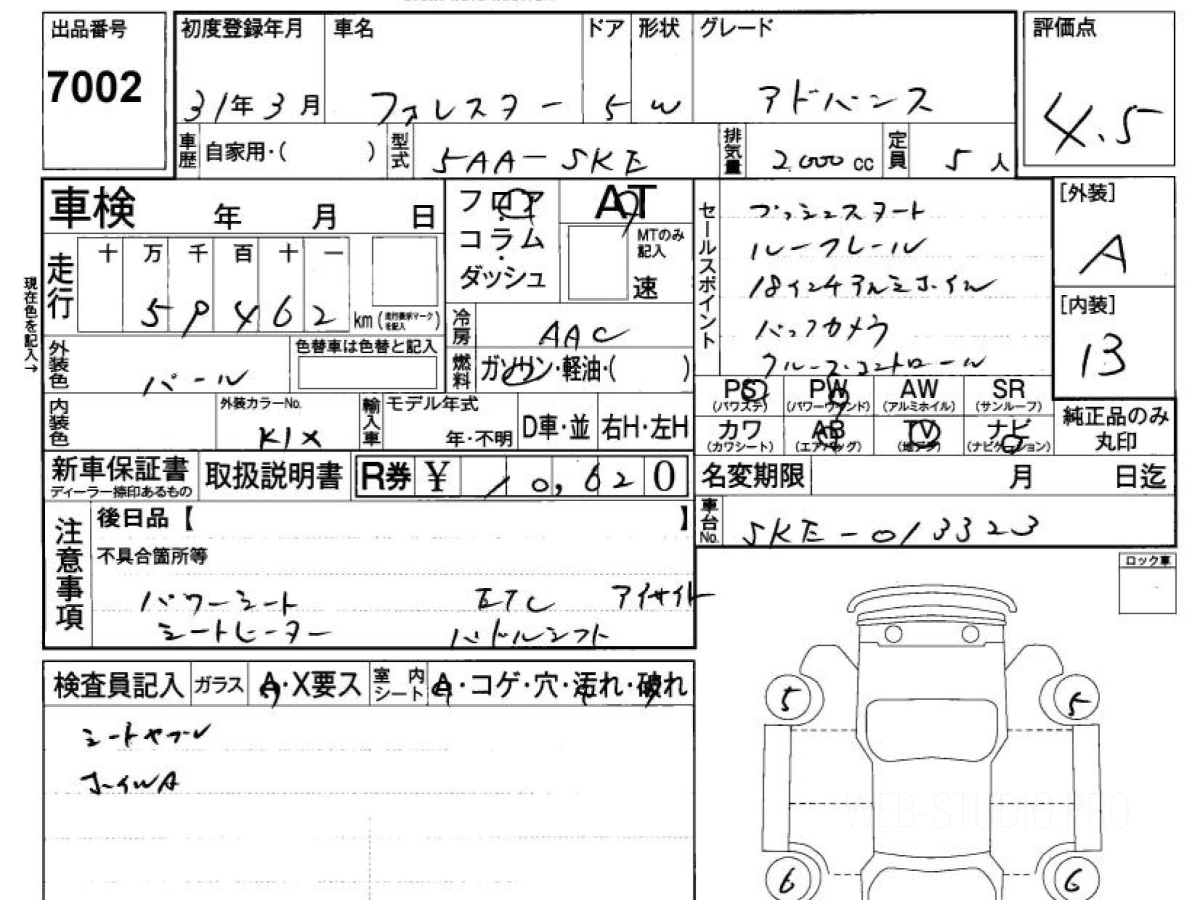 出品番号 初度登録年月 車名 ドア 形状 グレード 評価点
7002 31年3月 フォレスター 5 W アドバンス 4.5
車歴 自家用・( ) 型式 5AA-SKE 排気量 2000cc 定員 5人
車検 年 月 日 フロア AT [外装]
コラム・ MTのみ記入 A
ダッシュ 速
走行 十 万 千 百 十 一
59462 km(走行表示マークを記入)
現在色を記入→
セールスポイント プッシュスタート
ルーフレール
18インチアルミホイル
バックカメラ
クルーズコントロール
[内装]
13
冷房 AAC
外装色 パール 色替車は色替と記入 燃料 ガソリン・軽油・( )
PS (パワステ) PW (パワーウィンド) AW (アルミホイル) SR (サンルーフ)
内装色 外装カラーNo. K1X 輸入車 モデル年式 年・不明 D車・並 右H・左H
カワ (カワシート) AB (エアバッグ) TV (地デジ) ナビ (ナビゲーション) 純正品のみ丸印
新車保証書 ディーラー捺印あるもの 取扱説明書 R券 ¥ 10,620 名変期限 月 日迄
注意事項 後日品【 】 車台No. SKE-013323
不具合箇所等 ロック車
パワーシート ETC アイサイト
シートヒーター パドルシフト
検査員記入 ガラス A・X要ス 室内シート A・コゲ・穴・汚れ・破れ
シートヤブレ
ホイルA
5 5
WEB-STUDIO.PRO
6 6